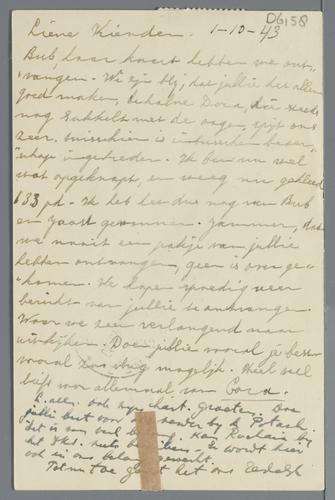 D6158
Lieve Kinder. 1-10-43
Bub, haar kaart hebben we ont-
vangen. We zijn blij, dat jullie het allen
goed maken, behalve Dora, die steeds
nog sukkelt met de oogen, spijt ons
zeer. Misschien is intusschen beter-
schap ingetreden. Ik ben nu wel
wat opgeknapt, en weeg nu gekleed
133 pd. Ik heb het dus nog van Bub
en Jaap gewonnen. Jammer, dat
we nooit een pakje van jullie
hebben ontvangen, geen is over ge-
komen. We hopen spoedig weer
bericht van jullie te ontvangen.
Waar we zeer verlangend naar
uitkijken. Doen jullie vooral je best
vooral zoo mogelijk. Heel veel
liefs voor allemaal van Para.
L. allen. ook mijn hart. Groeten. Doe
jullie best voor ons
het is van veel belang.
het Er wordt hier
ook in ons belang gewerkt.
Tot nu toe gaat het ons